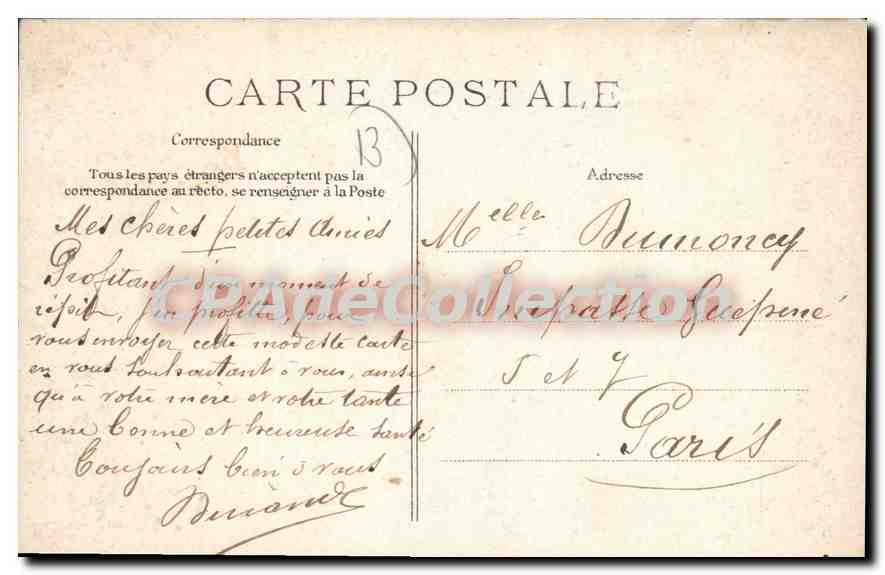 CARTE POSTALE
Correspondance
13
Tous les pays étrangers n'acceptent pas la
correspondance au recto, se renseigner à la Poste
Adresse
Mes chères petites Amies
Profitant d'un moment de
répit, j'en profite, pour
vous envoyer cette modeste carte
en vous souhaitant à vous, ainsi
qu'à votre mère et votre tante
une bonne et heureuse santé
Toujours bien à vous
Melle Dumoncy
Impasse Guépiné
5 et 7
Paris
CPAdeCollection